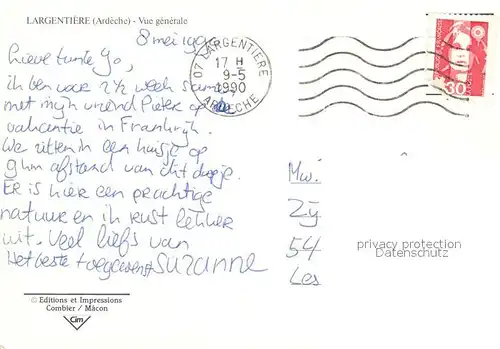 LARGENTIÈRE (Ardèche) - Vue générale
8 mei 1990
07 LARGENTIERE
17 H
9-5
1990
ARDECHE
30
Lieve tante Jo,
ik ben voor 2½ week samen
met mijn vriend Pieter op
vakantie in Frankrijk.
We zitten in een huisje op
9 km afstand van dit dorpje.
Er is hier een prachtige
natuur en ik rust lekker
uit. Veel liefs van
Het beste toegewenst SUZANNE
Mw.
54
privacy protection
Datenschutz
© Editions et Impressions
Combier / Mâcon
Cim